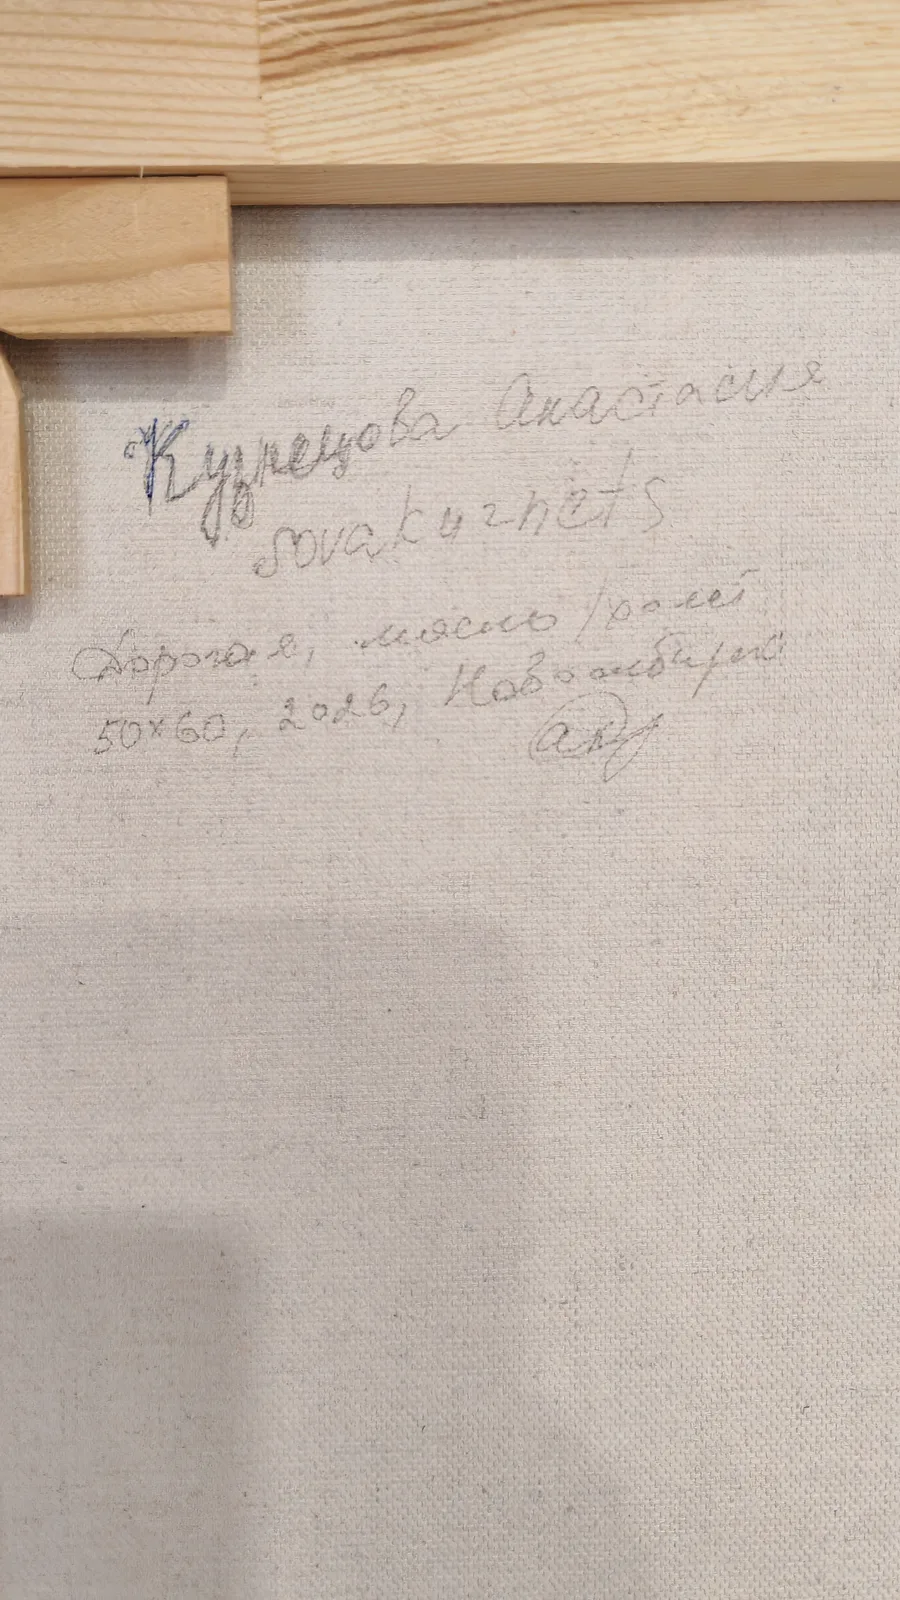 Кузнецова Анастасия
sovakuznets
Дорогая, масло/холст
50×60, 2026, Новосибирск